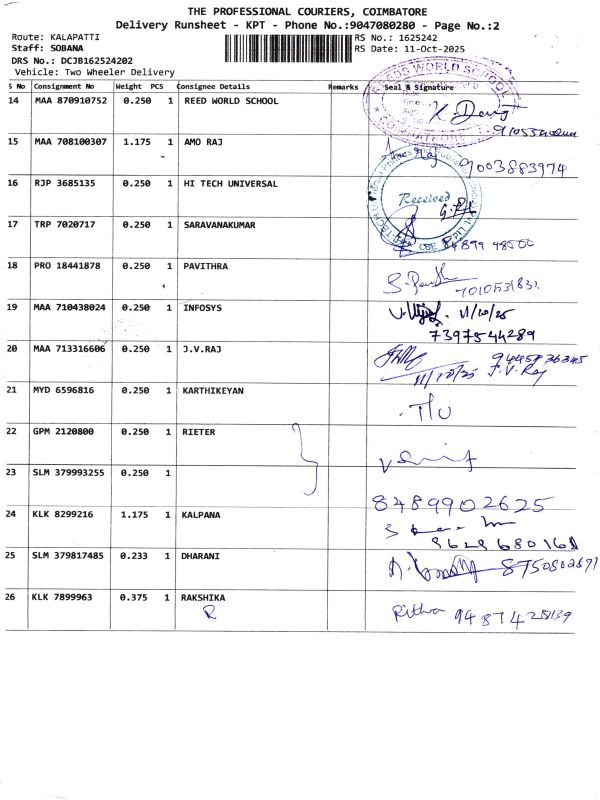 THE PROFESSIONAL COURIERS, COIMBATORE
Delivery Runsheet - KPT - Phone No.:9047080280 - Page No.:2
Route: KALAPATTI RS No.: 1625242
Staff: SOBANA RS Date: 11-Oct-2025
DRS No.: DCJB162524202
Vehicle: Two Wheeler Delivery
S No Consignment No Weight PCS Consignee Details Remarks Seal & Signature
14 MAA 870910752 0.250 1 REED WORLD SCHOOL
15 MAA 708100307 1.175 1 AMO RAJ
9003883974
16 RJP 3685135 0.250 1 HI TECH UNIVERSAL Received
17 TRP 7020717 0.250 1 SARAVANAKUMAR
CBE
18 PRO 18441878 0.250 1 PAVITHRA
19 MAA 710438024 0.250 1 INFOSYS 11/10/25
7397544289
20 MAA 713316606 0.250 1 J.V.RAJ
11/10/25 J.V. Raj
21 MYD 6596816 0.250 1 KARTHIKEYAN
22 GPM 2120800 0.250 1 RIETER
23 SLM 379993255 0.250 1
8489902625
24 KLK 8299216 1.175 1 KALPANA
25 SLM 379817485 0.233 1 DHARANI
26 KLK 7899963 0.375 1 RAKSHIKA
R